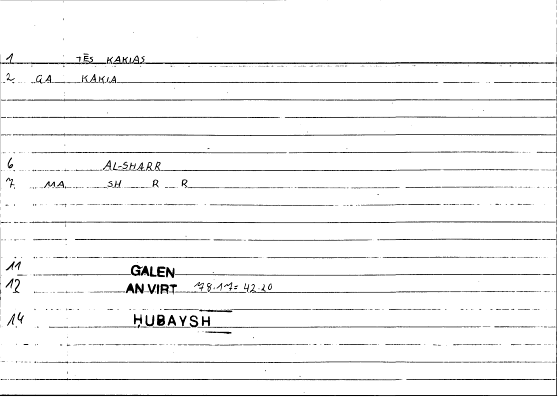 1 TĒS KAKIAS
2 GA KAKIA
6 AL-SHARR
7 MA SH R R
11 GALEN
12 AN VIRT 78.17= 42.20
14 ḤUBAYSH